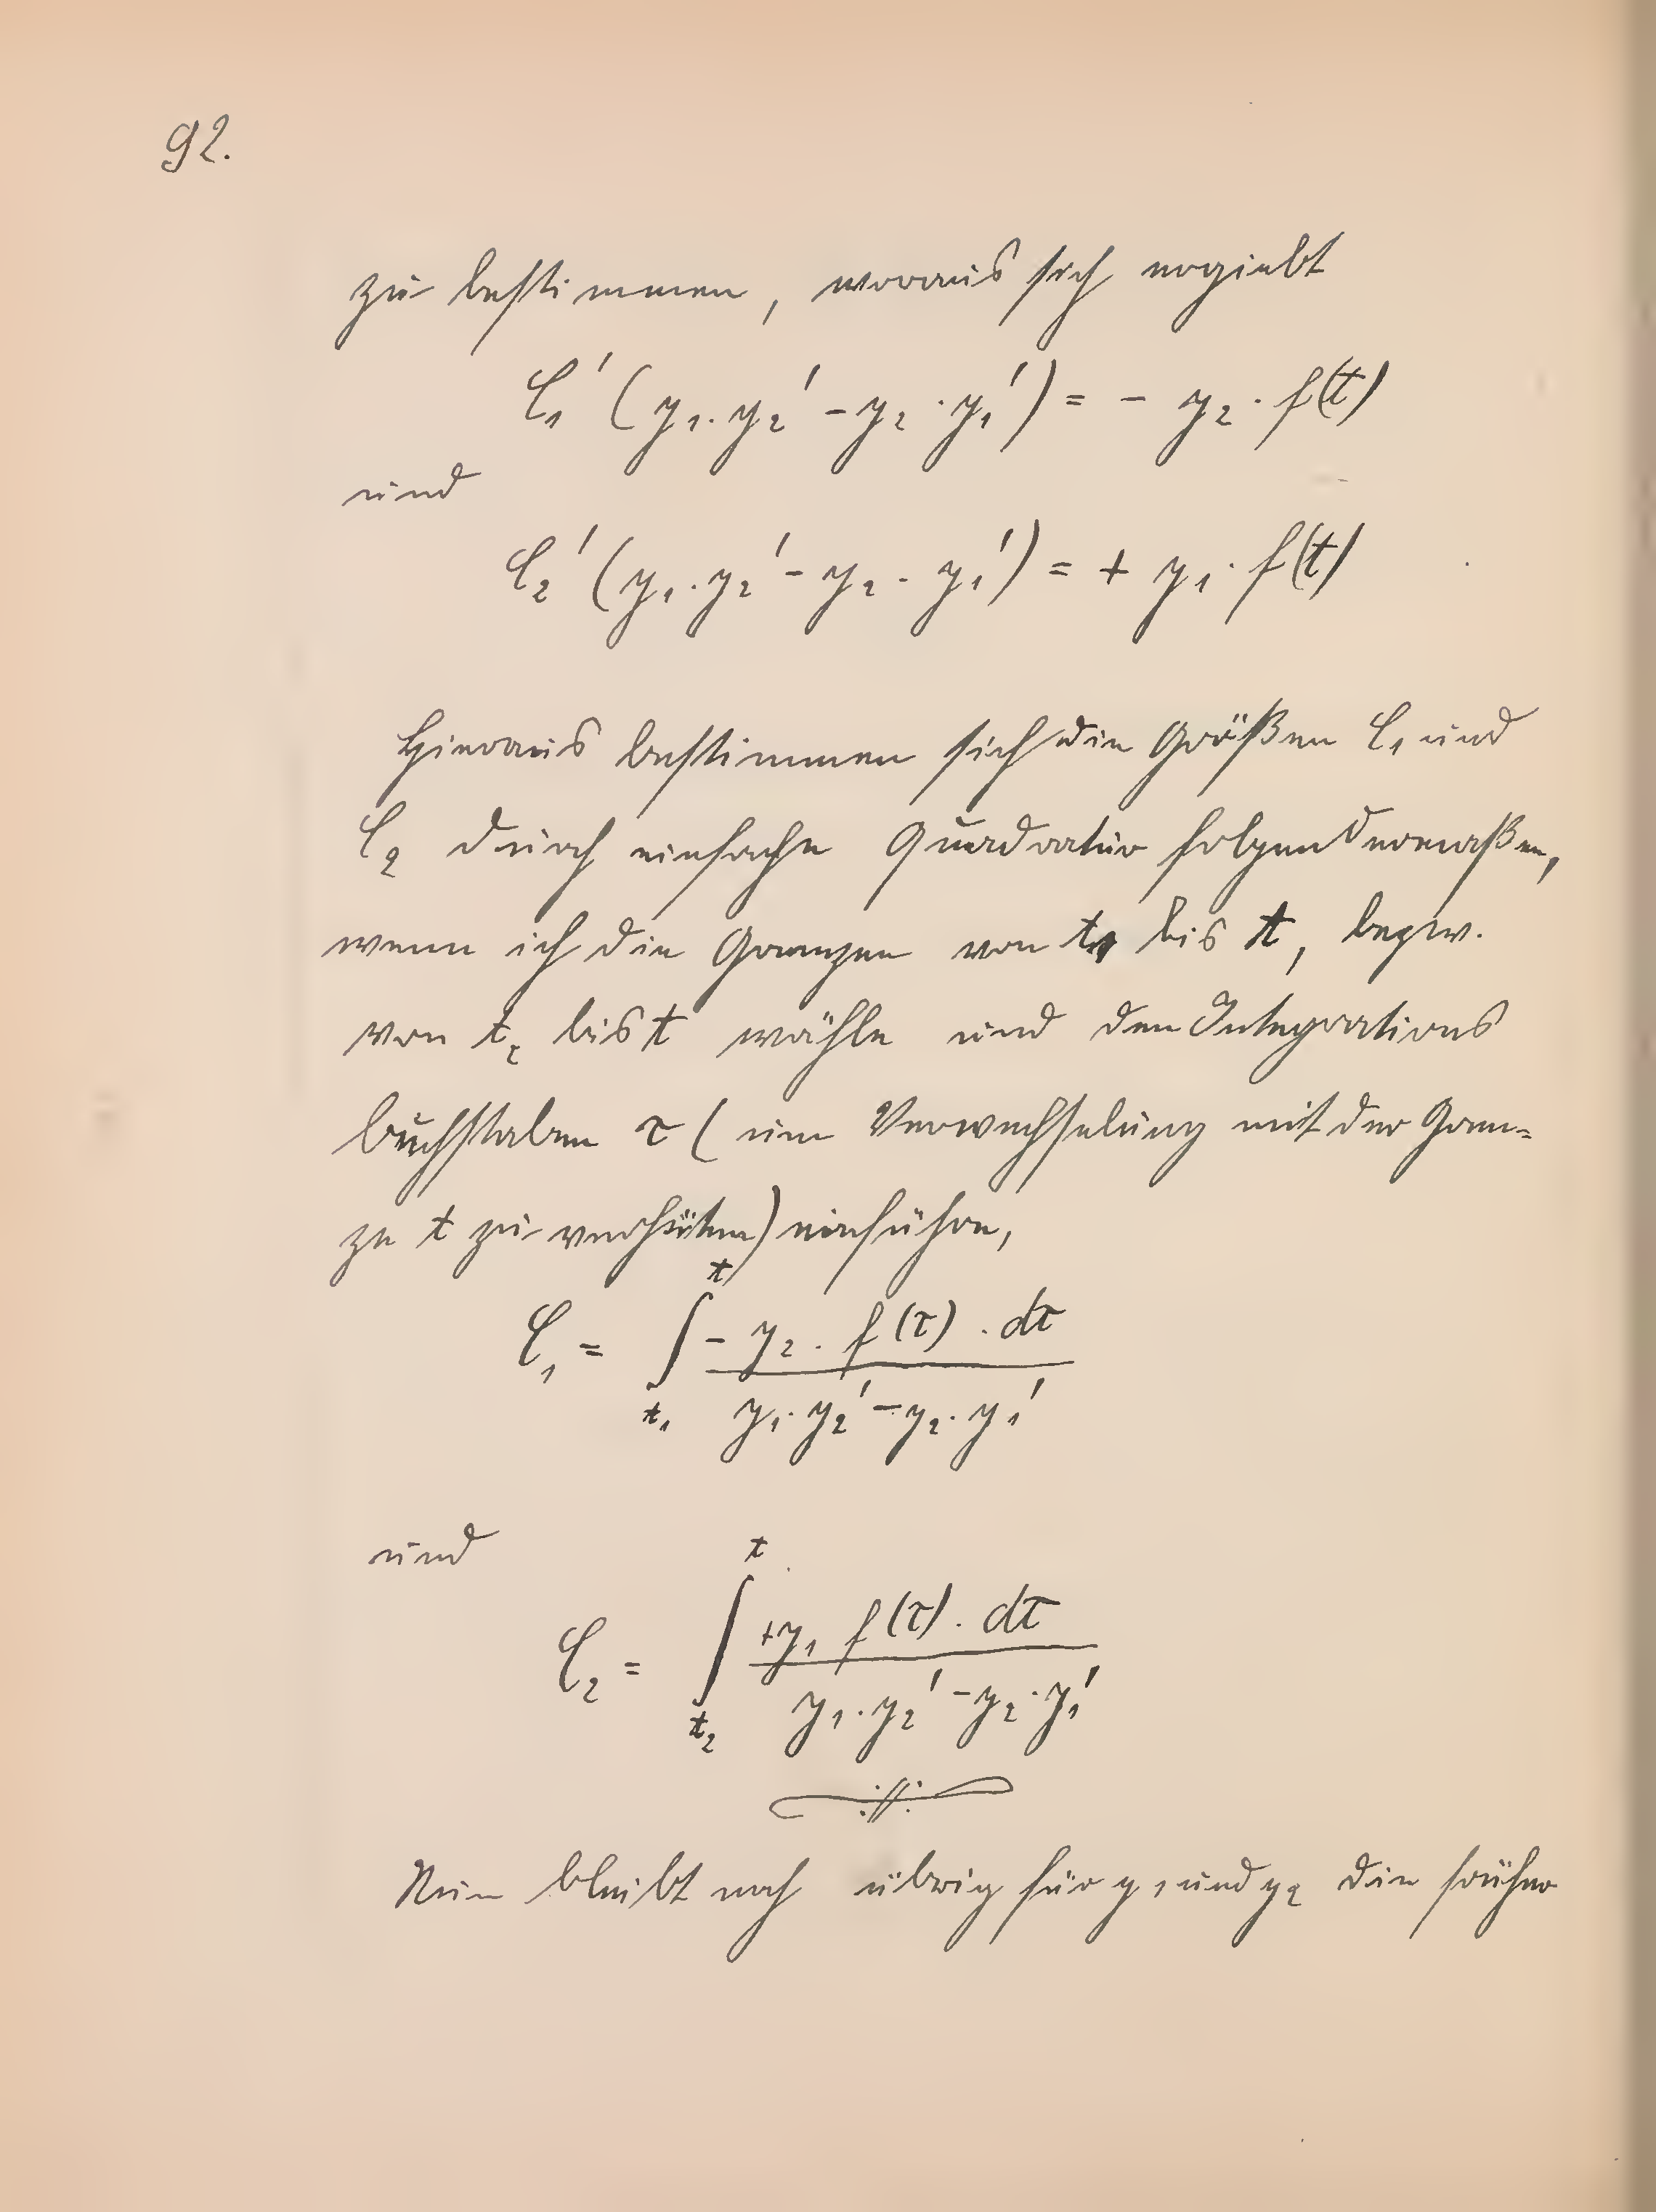 92.
zu bestimmen, woraus sich ergiebt
C₁′ (y₁·y₂′ - y₂·y₁′) = - y₂·f(t)
und
C₂′ (y₁·y₂′ - y₂·y₁′) = + y₁·f(t)
Hieraus bestimmen sich die Größen C₁ und
C₂ durch einfache Quadratur folgendermaßen,
wenn ich die Grenzen von t₁ bis t, bezw.
von t₂ bis t wähle und den Integrations
buchstaben τ (um Verwechselung mit der Gren=
ze t zu verhüten) einführe,
C₁ = ∫ₜ₁ᵗ (- y₂ · f(τ) · dτ) / (y₁·y₂′ - y₂·y₁′)
und
C₂ = ∫ₜ₂ᵗ (+y₁ f(τ) · dτ) / (y₁·y₂′ - y₂·y₁′)
Nun bleibt noch übrig für y₁ und y₂ die früher